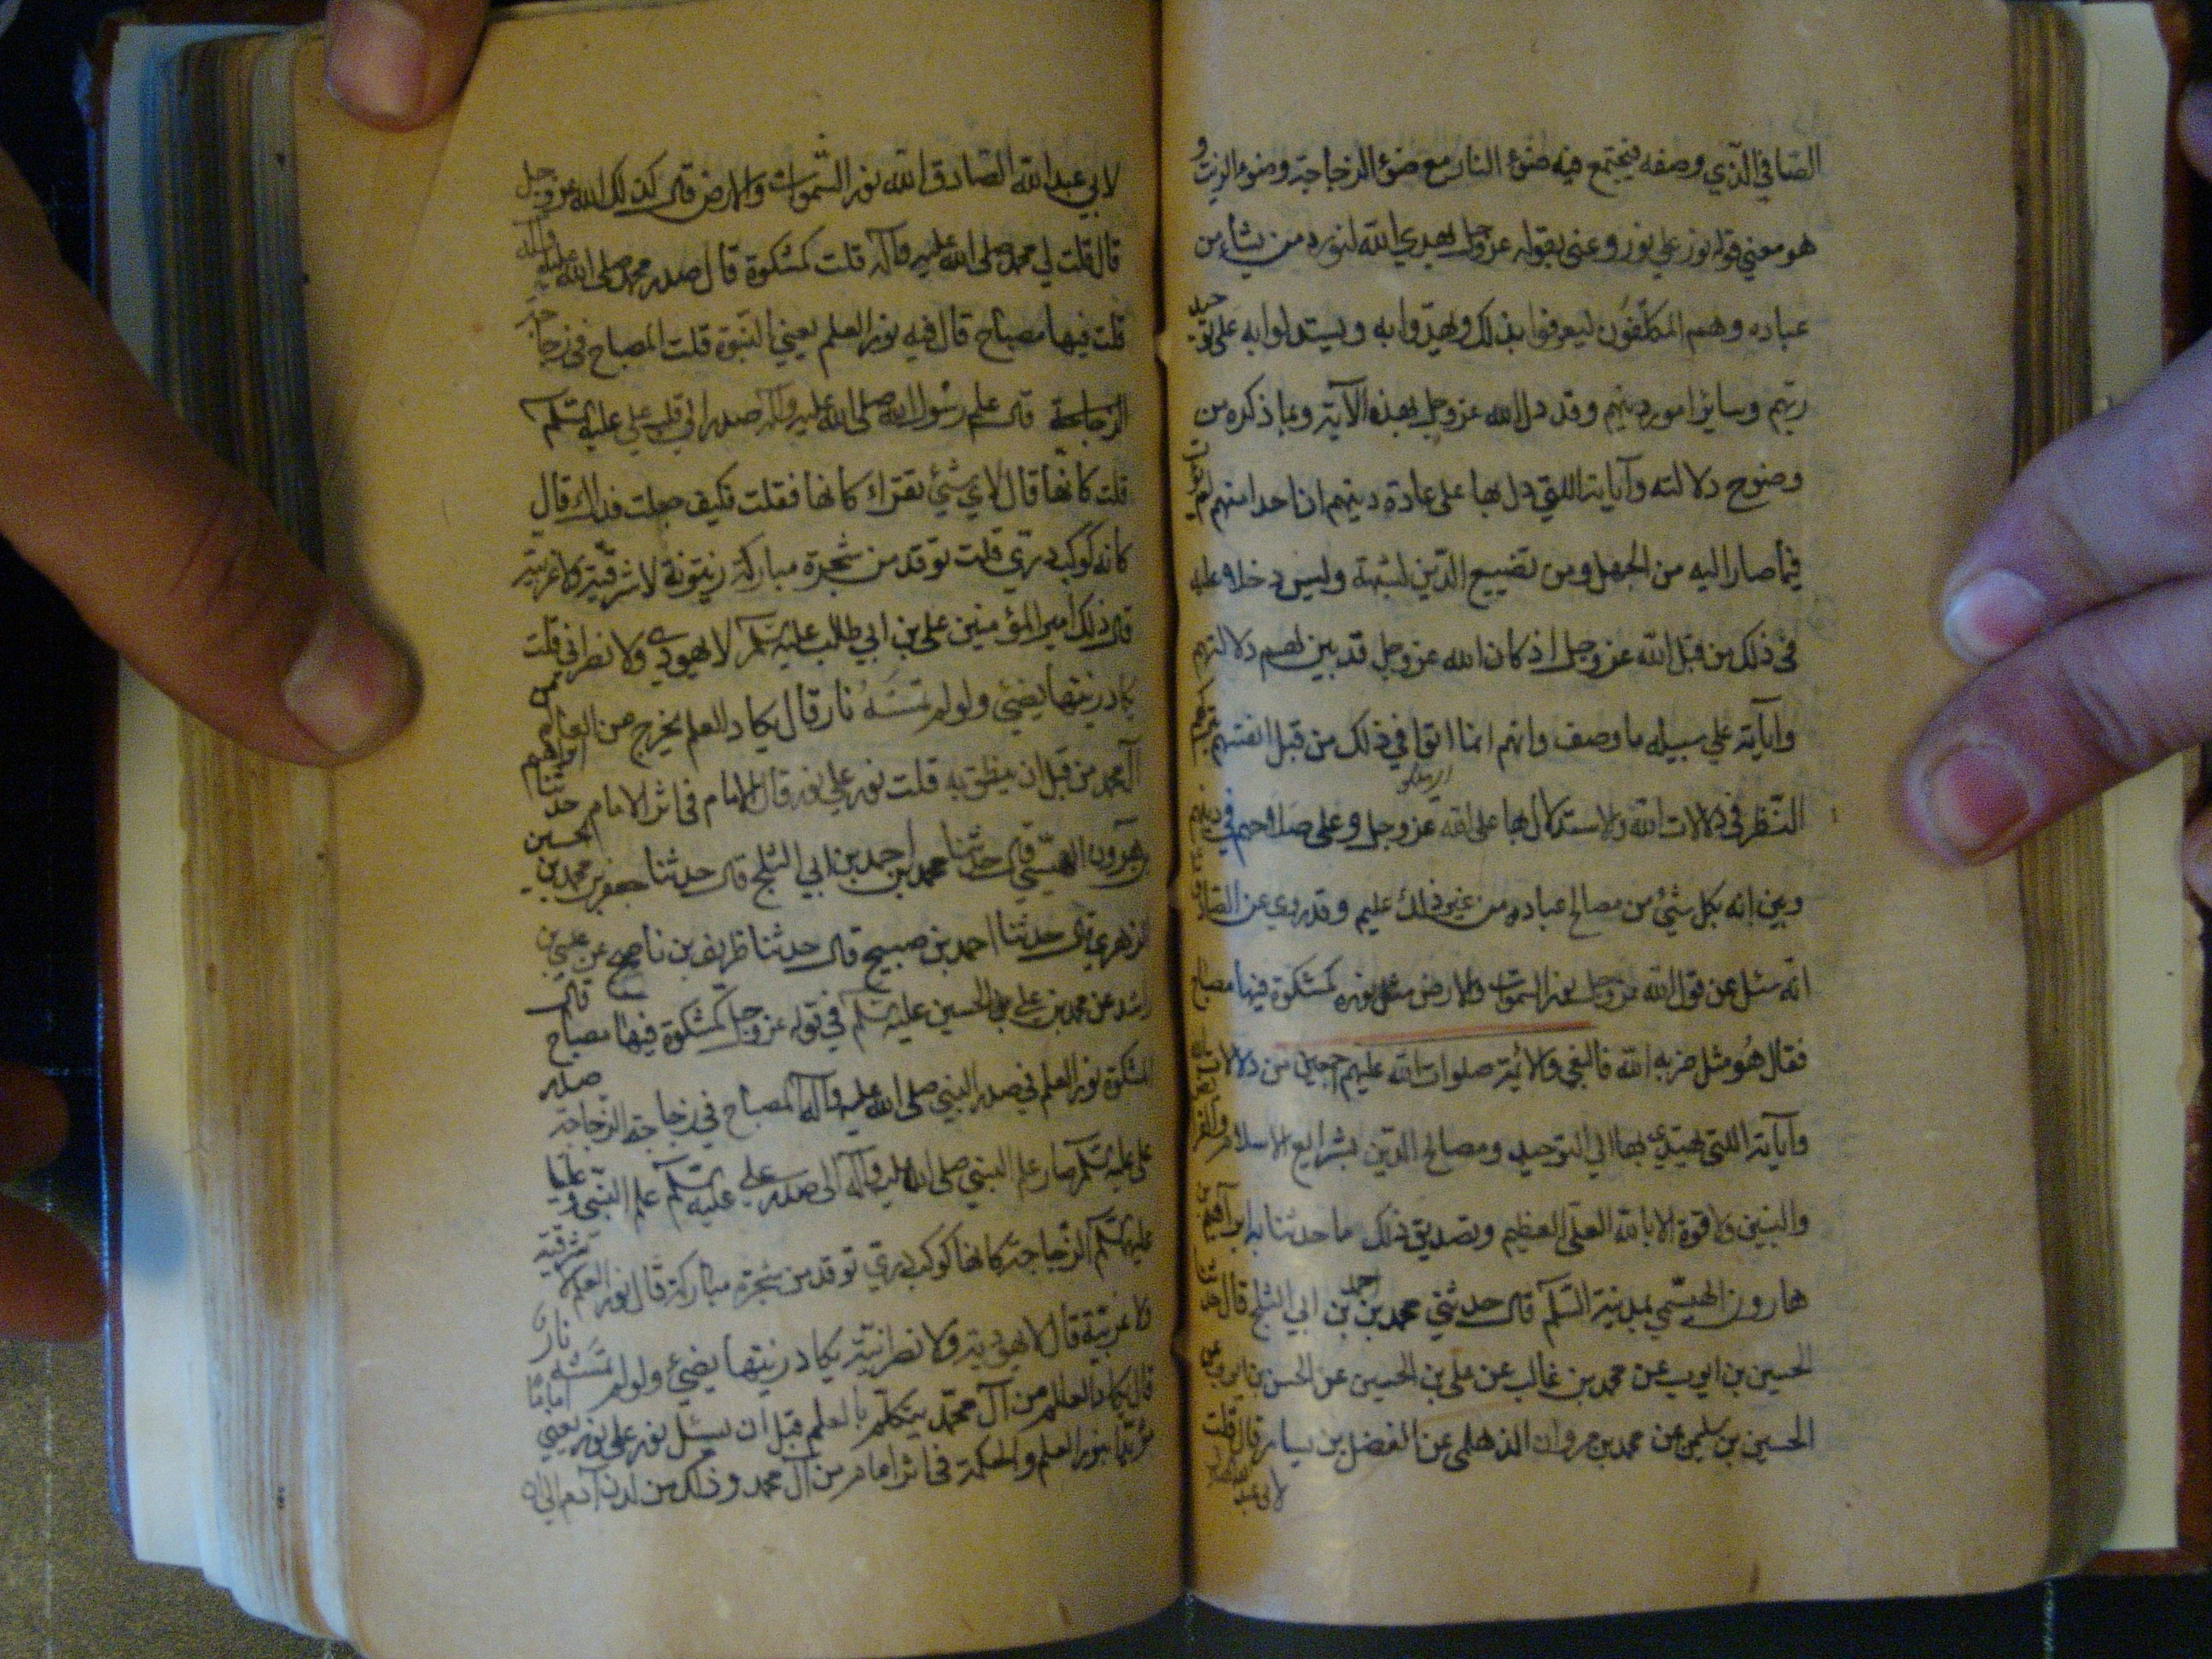 الصافي الذي وصفه فيجتمع فيه ضوء النار مع ضوء الزجاجة وضوء الزيت و
هو معني قوله نور علي نور وعني بقوله عز وجل يهدي الله لنوره من يشاء من
عباده وهم المكلفون ليعرفوا بذلك ويهتدوا به ويستدلوا به علي توحيد
ربهم وساير امور دينهم وقد دل الله عز وجل بهذه الآية وبما ذكره من
وضوح دلالته وآياته اللتي دل بها علي عباده دينهم ان احدا منهم لم
فيما صار اليه من الجهل ومن تضييع الدين لشبهة ولبس دخلا عليه
في ذلك من قبل الله عز وجل اذ كان الله عز وجل قد بين لهم دلالته
وآياته علي سبيل ما وصف وانهم انما اتوا في ذلك من قبل انفسهم
النظر في دلالات الله والاستدلال بها علي الله عز وجل وعلي صلاحهم في
وبين انه بكل شئ من مصالح عباده من غير ذلك عليم وقد روي عن الصادق
انه سئل عن قول الله عز وجل نور السموات والارض مثل نوره كمشكوة فيها مصباح
فقال هو مثل ضربه الله فالنبي والائمة صلوات الله عليهم اجمعين من دلالات
وآياته اللتي يهتدي بها الي التوحيد ومصالح الدين بشرايع الاسلام
والسنن ولا قوة الا بالله العلي العظيم وتصديق ذلك ما حدثنا به ابراهيم بن
هارون الهيسي بمدينة السلم قال حدثني محمد بن احمد بن ابي الثلج قال حدثنا
الحسين بن ايوب عن محمد بن غالب عن علي بن الحسين عن الحسن بن ايوب عن
الحسين بن سليمن عن محمد بن مروان الذهلي عن الفضل بن يسار قال قلت
لابي عبد الله
لابي عبد الله الصادق الله نور السموات والارض قال كذلك الله عز وجل
قال قلت لي محمد صلي الله عليه وآله قلت كمشكوة قال صدر محمد صلي الله عليه وآله
قلت فيها مصباح قال فيه نور العلم يعني النبوة قلت المصباح في زجاجة
الزجاجة قال علم رسول الله صلي الله عليه وآله صدر الي قلب علي عليه السلم
قلت كانها قال لاي شئ تقرأ كانها فقلت فكيف جعلت فداك قال
كانه كوكب دري قلت توقد من شجرة مباركة زيتونة لا شرقية ولا غربية
قال ذلك امير المؤمنين علي بن ابي طالب عليه السلم لا يهودي ولا نصراني قلت
يكاد زيتها يضئ ولو لم تمسسه نار قال يكاد العلم يخرج من فم العالم من
آل محمد من قبل ان ينطق به قلت نور علي نور قال الامام في اثر الامام حدثنا ابراهيم
بن هرون الهيسي قال حدثنا محمد بن احمد بن ابي الثلج قال حدثنا جعفر بن محمد بن الحسين
الزهري قال حدثنا احمد بن صبيح قال حدثنا ظريف بن ناصح عن عيسي بن
راشد عن محمد بن علي بن الحسين عليه السلم في قوله عز وجل كمشكوة فيها مصباح قال
المشكوة نور العلم في صدر النبي صلي الله عليه وآله المصباح في زجاجة الزجاجة صدر
علي عليه السلم صار علم النبي صلي الله عليه وآله الي صدر علي عليه السلم علم النبي عليا
عليه السلم الزجاجة كانها كوكب دري توقد من شجرة مباركة قال نور العلم لا شرقية
ولا غربية قال لا يهودية ولا نصرانية يكاد زيتها يضئ ولو لم تمسسه نار
قال يكاد العالم من آل محمد يتكلم بالعلم قبل ان يسئل نور علي نور يعني اماما
مؤيدا بنور العلم والحكمة في اثر امام من آل محمد وذلك من لدن آدم الي ان